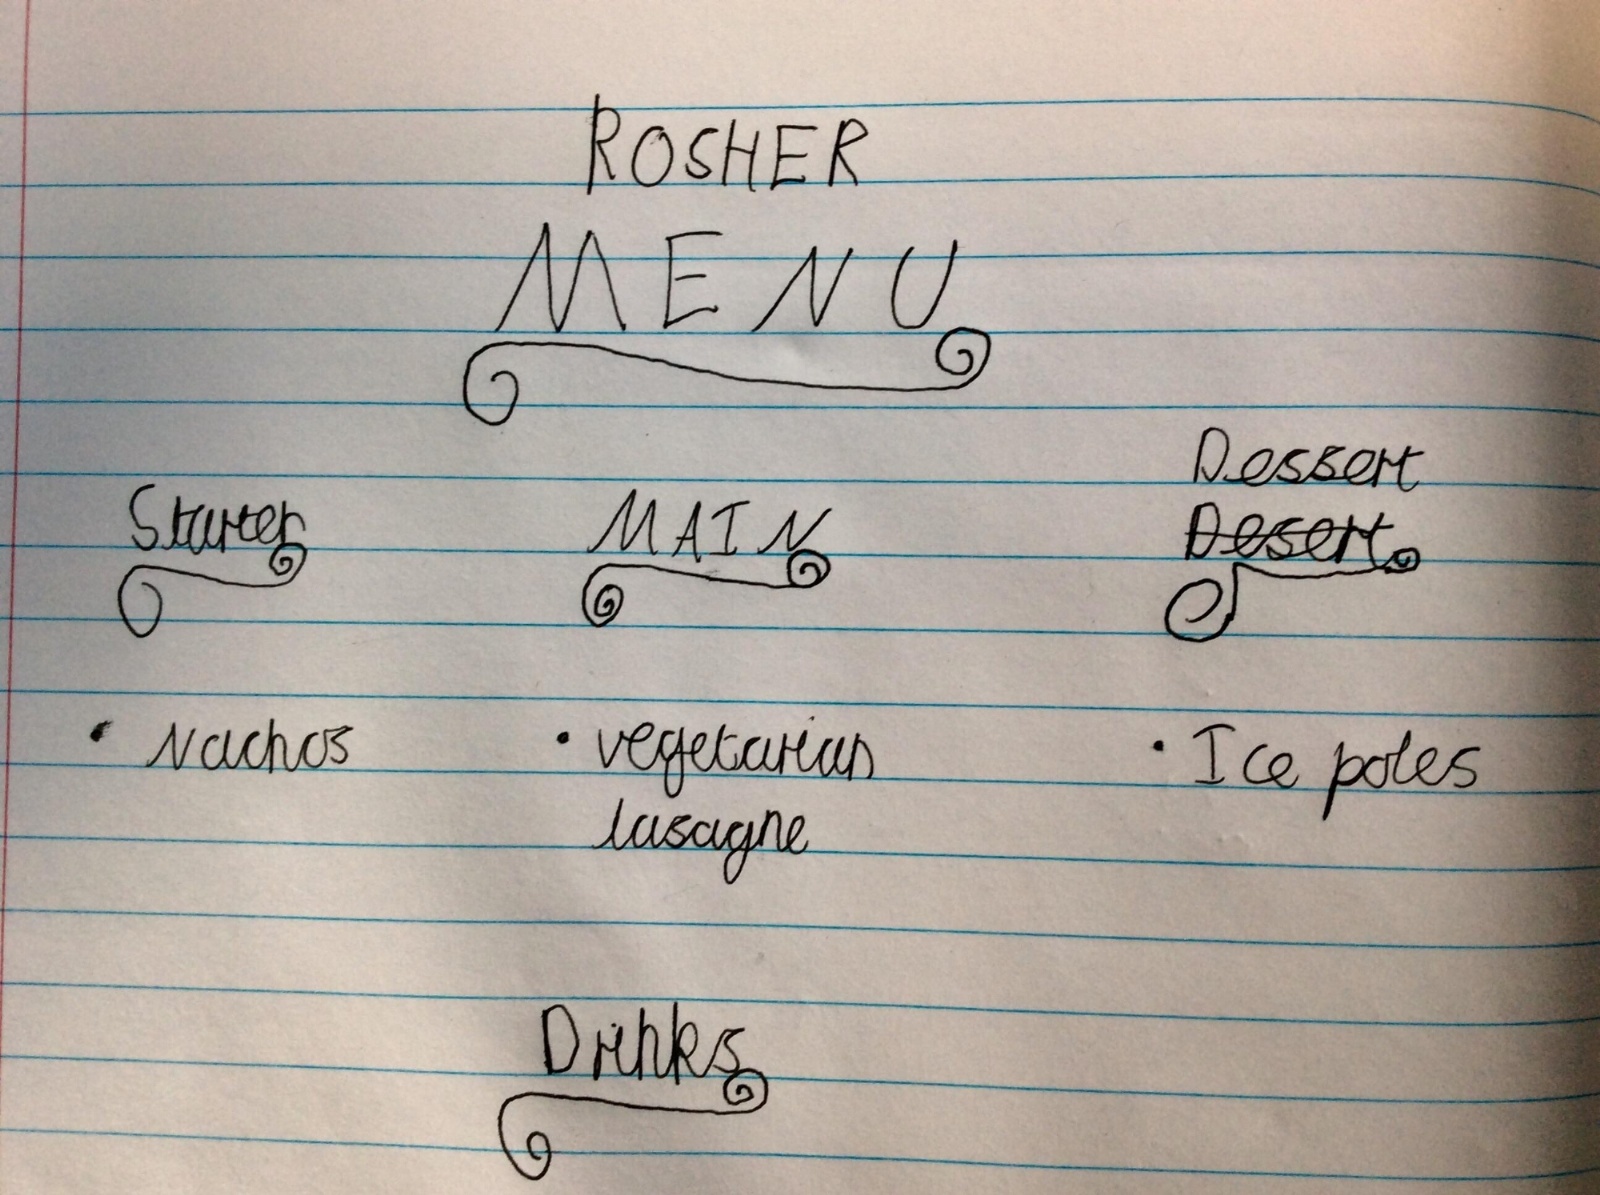 ROSHER
MENU
Starter
MAIN
Dessert
Desert
• Nachos
• vegetarian
lasagne
• Ice poles
Drinks